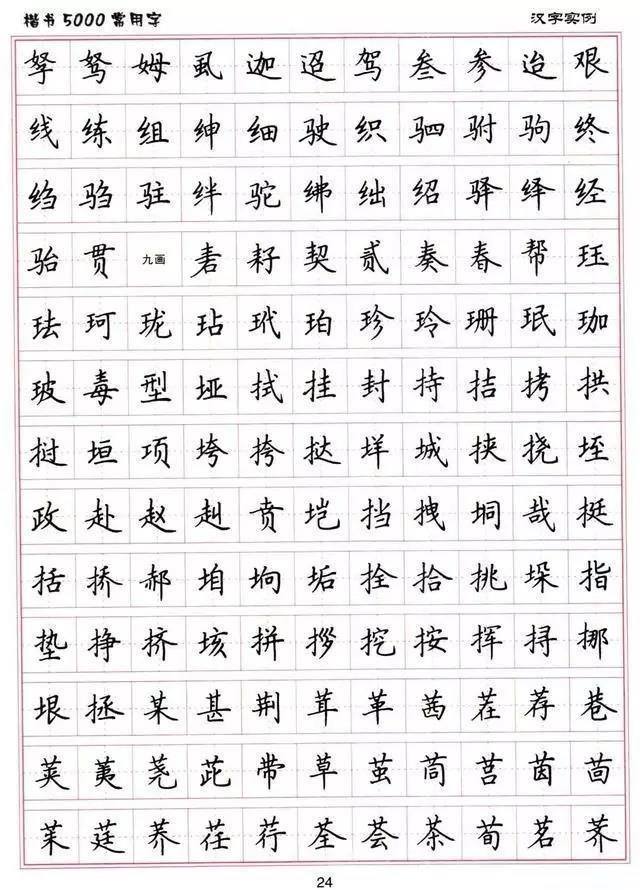 楷书5000常用字 汉字实例
孥驽姆虱迦迢驾叁参迨艰
线练组绅细驶织驷驸驹终
绉驺驻绊驼绋绌绍驿绎经
骀贯九画砉耔契贰奏春帮珏
珐珂珑玷玳珀珍玲珊珉珈
玻毒型垭拭挂封持拮拷拱
挝垣项垮挎挞垟城挟挠垤
政赴赵赳贲垲挡拽垌哉挺
括挢郝垍垧垢拴拾挑垛指
垫挣挤垓拼拶挖按挥挦挪
垠拯某甚荆茸革茜茬荐巷
荚荑荛茈带草茧茼莒茵茴
茱莛荞荏荇荃荟茶荀茗荠
24